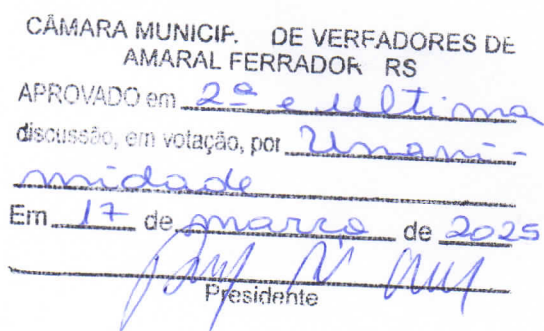 CÂMARA MUNICIP. DE VEREADORES DE
AMARAL FERRADOR RS
APROVADO em 2ª e última
discussão, em votação, por Unani-
midade
Em 17 de março de 2025
Presidente